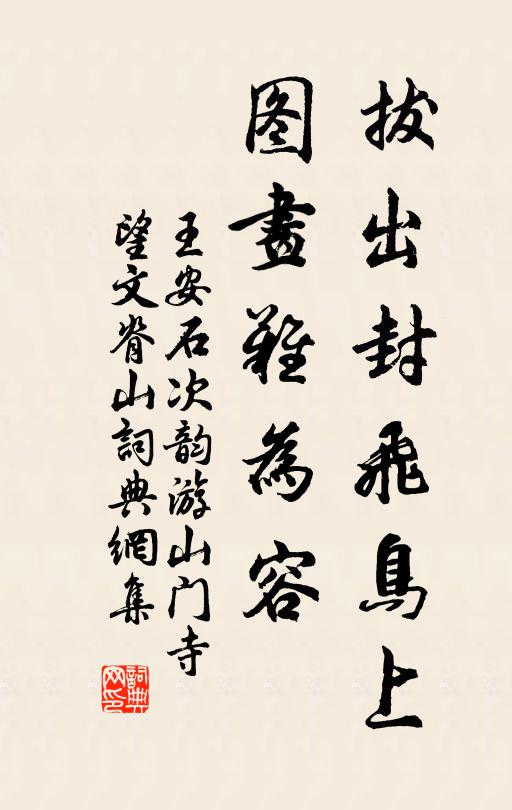 拔出封飛鳥上
图畫難為容
王安石次韵游山门寺
望文脊山詞典網集
詞典网印